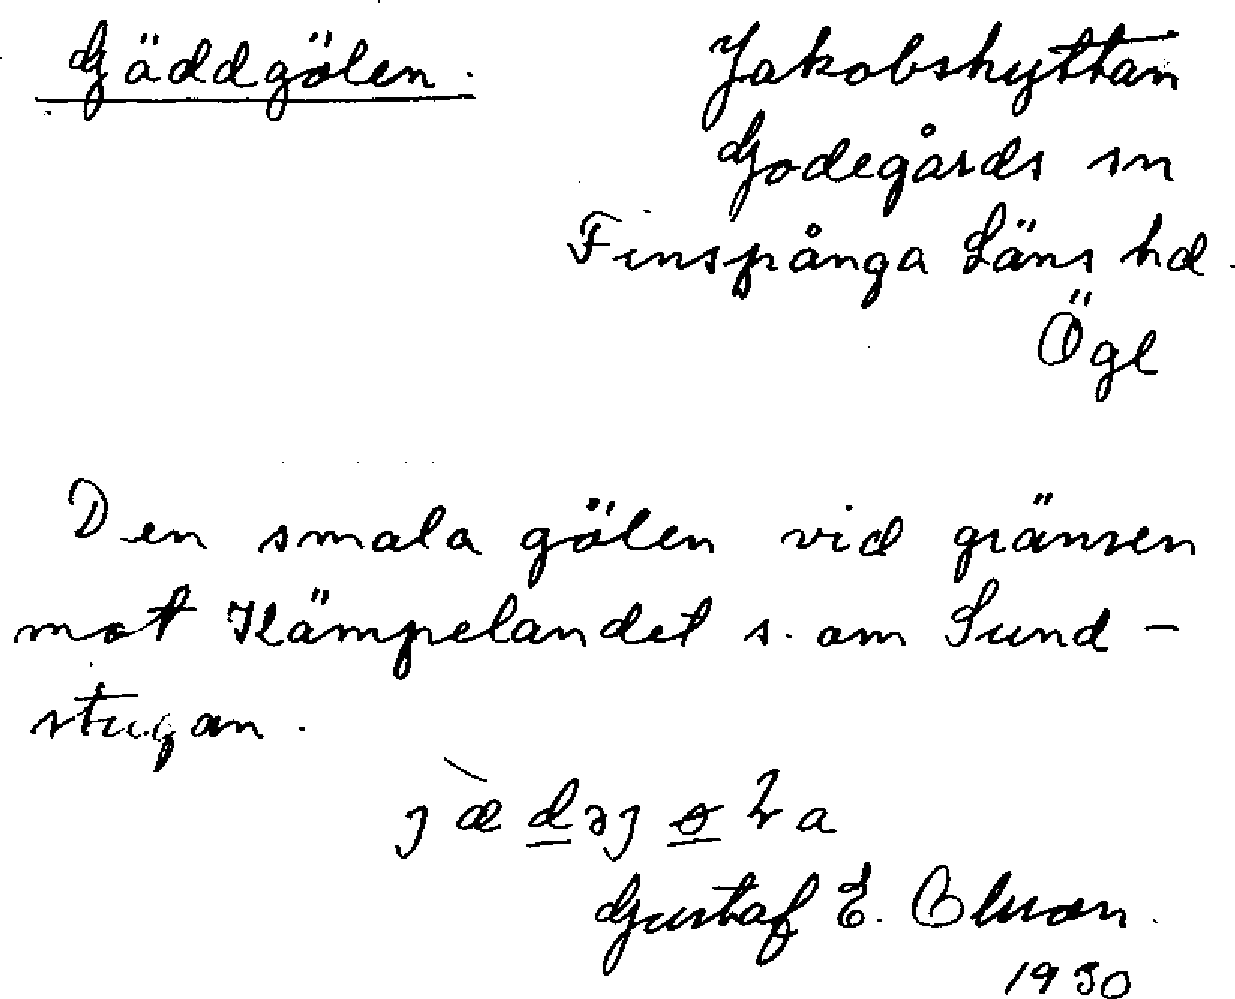 Gäddgölen.
Jakobshyttan
Godegårds sn
Finspånga Läns hd.
Ögl
Den smala gölen vid gränsen
mot Kämpelandet s. om Sund-
stugan.
Gustaf E. Olsson.
1930